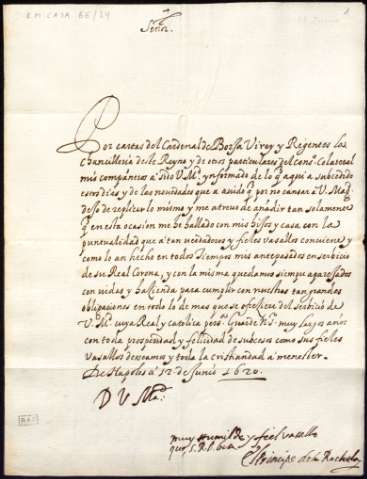 Señor.
Por cartas del Cardenal de Borja Virey y Regentes la
Chancilleria deste Reyno y de otros particulares del cons.º Colateral
mis compañeros a sido V M.ᵈ ynformado de lo q̃ aqui a subcedido
estos dias y de las novedades que a auido q̃ por no cansar a V. Mag.ᵈ
dejo de replicar lo mismo y me atreuo de añadir tan solamente
q̃ en esta ocasion me he hallado con mis hijos y casa con la
puntualidad que a tan verdaderos y fieles vasallos conuiene y
como lo an hecho en todos tiempos mis antepasados en seruicio
de su Real Corona, y con la misma quedamos siempre aparejados
con vidas y hazienda para cumplir con nuestras tan grandes
obligaciones en todo lo de mas que se ofreciere del seruicio de
V. M.ᵈ cuya Real y catolica pers.ª Guarde N.S. muy largos años
con toda prosperidad y felicidad de sucesos como sus fieles
Vasallos deseamos y toda la cristiandad a menester.
De Napoles a 12 de Junio 1620.
D V M.ᵈ
muy humilde y fiel vasallo
que S.R.P. besa
El Principe de la Rochela